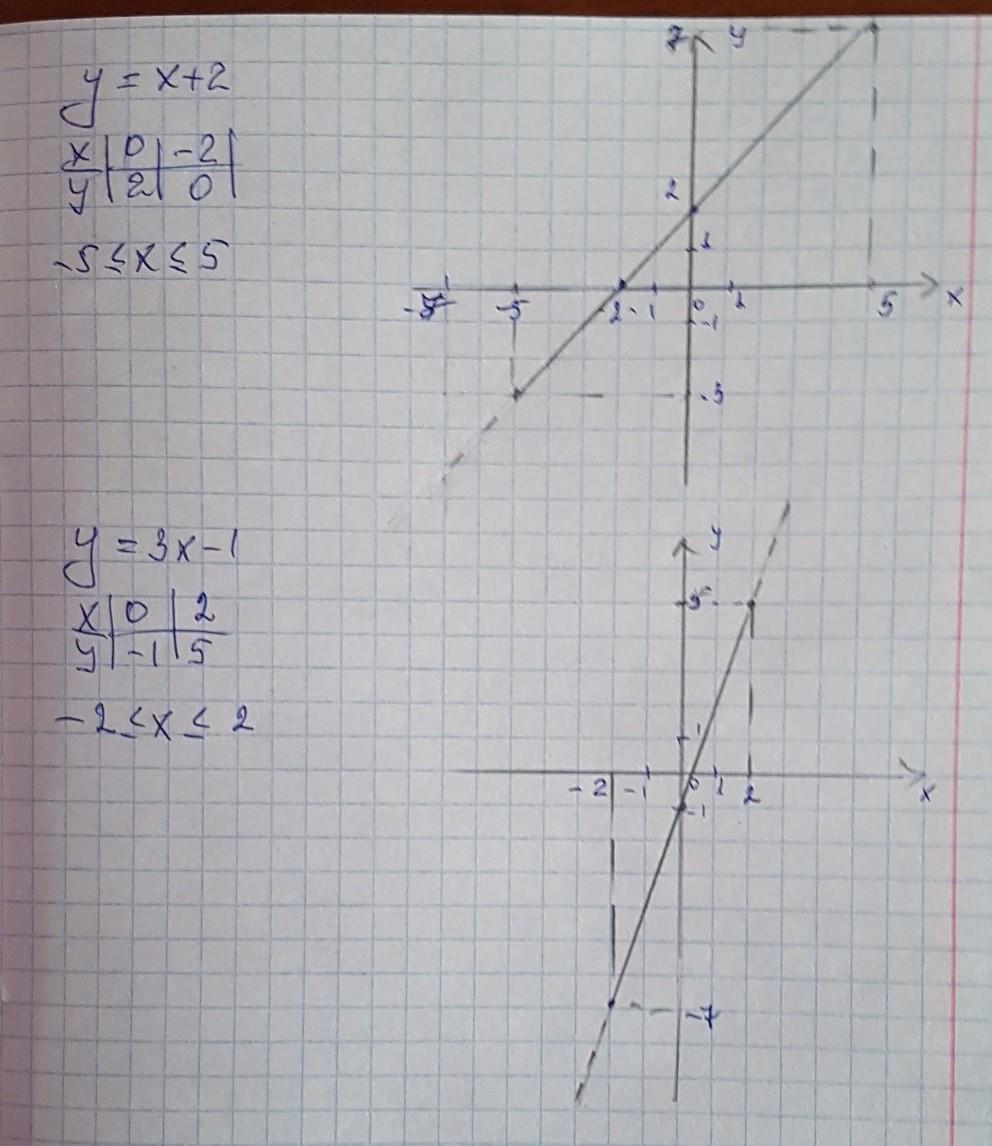 y = x+2
x | 0 | -2 |
y | 2 | 0 |
-5 ≤ x ≤ 5
7 y
2
1
-5 -2 -1 0 1 5 x
-1
-3
y = 3x-1
x | 0 | 2
y | -1 | 5
-2 ≤ x ≤ 2
y
5
1
-2 -1 0 1 2 x
-1
-7